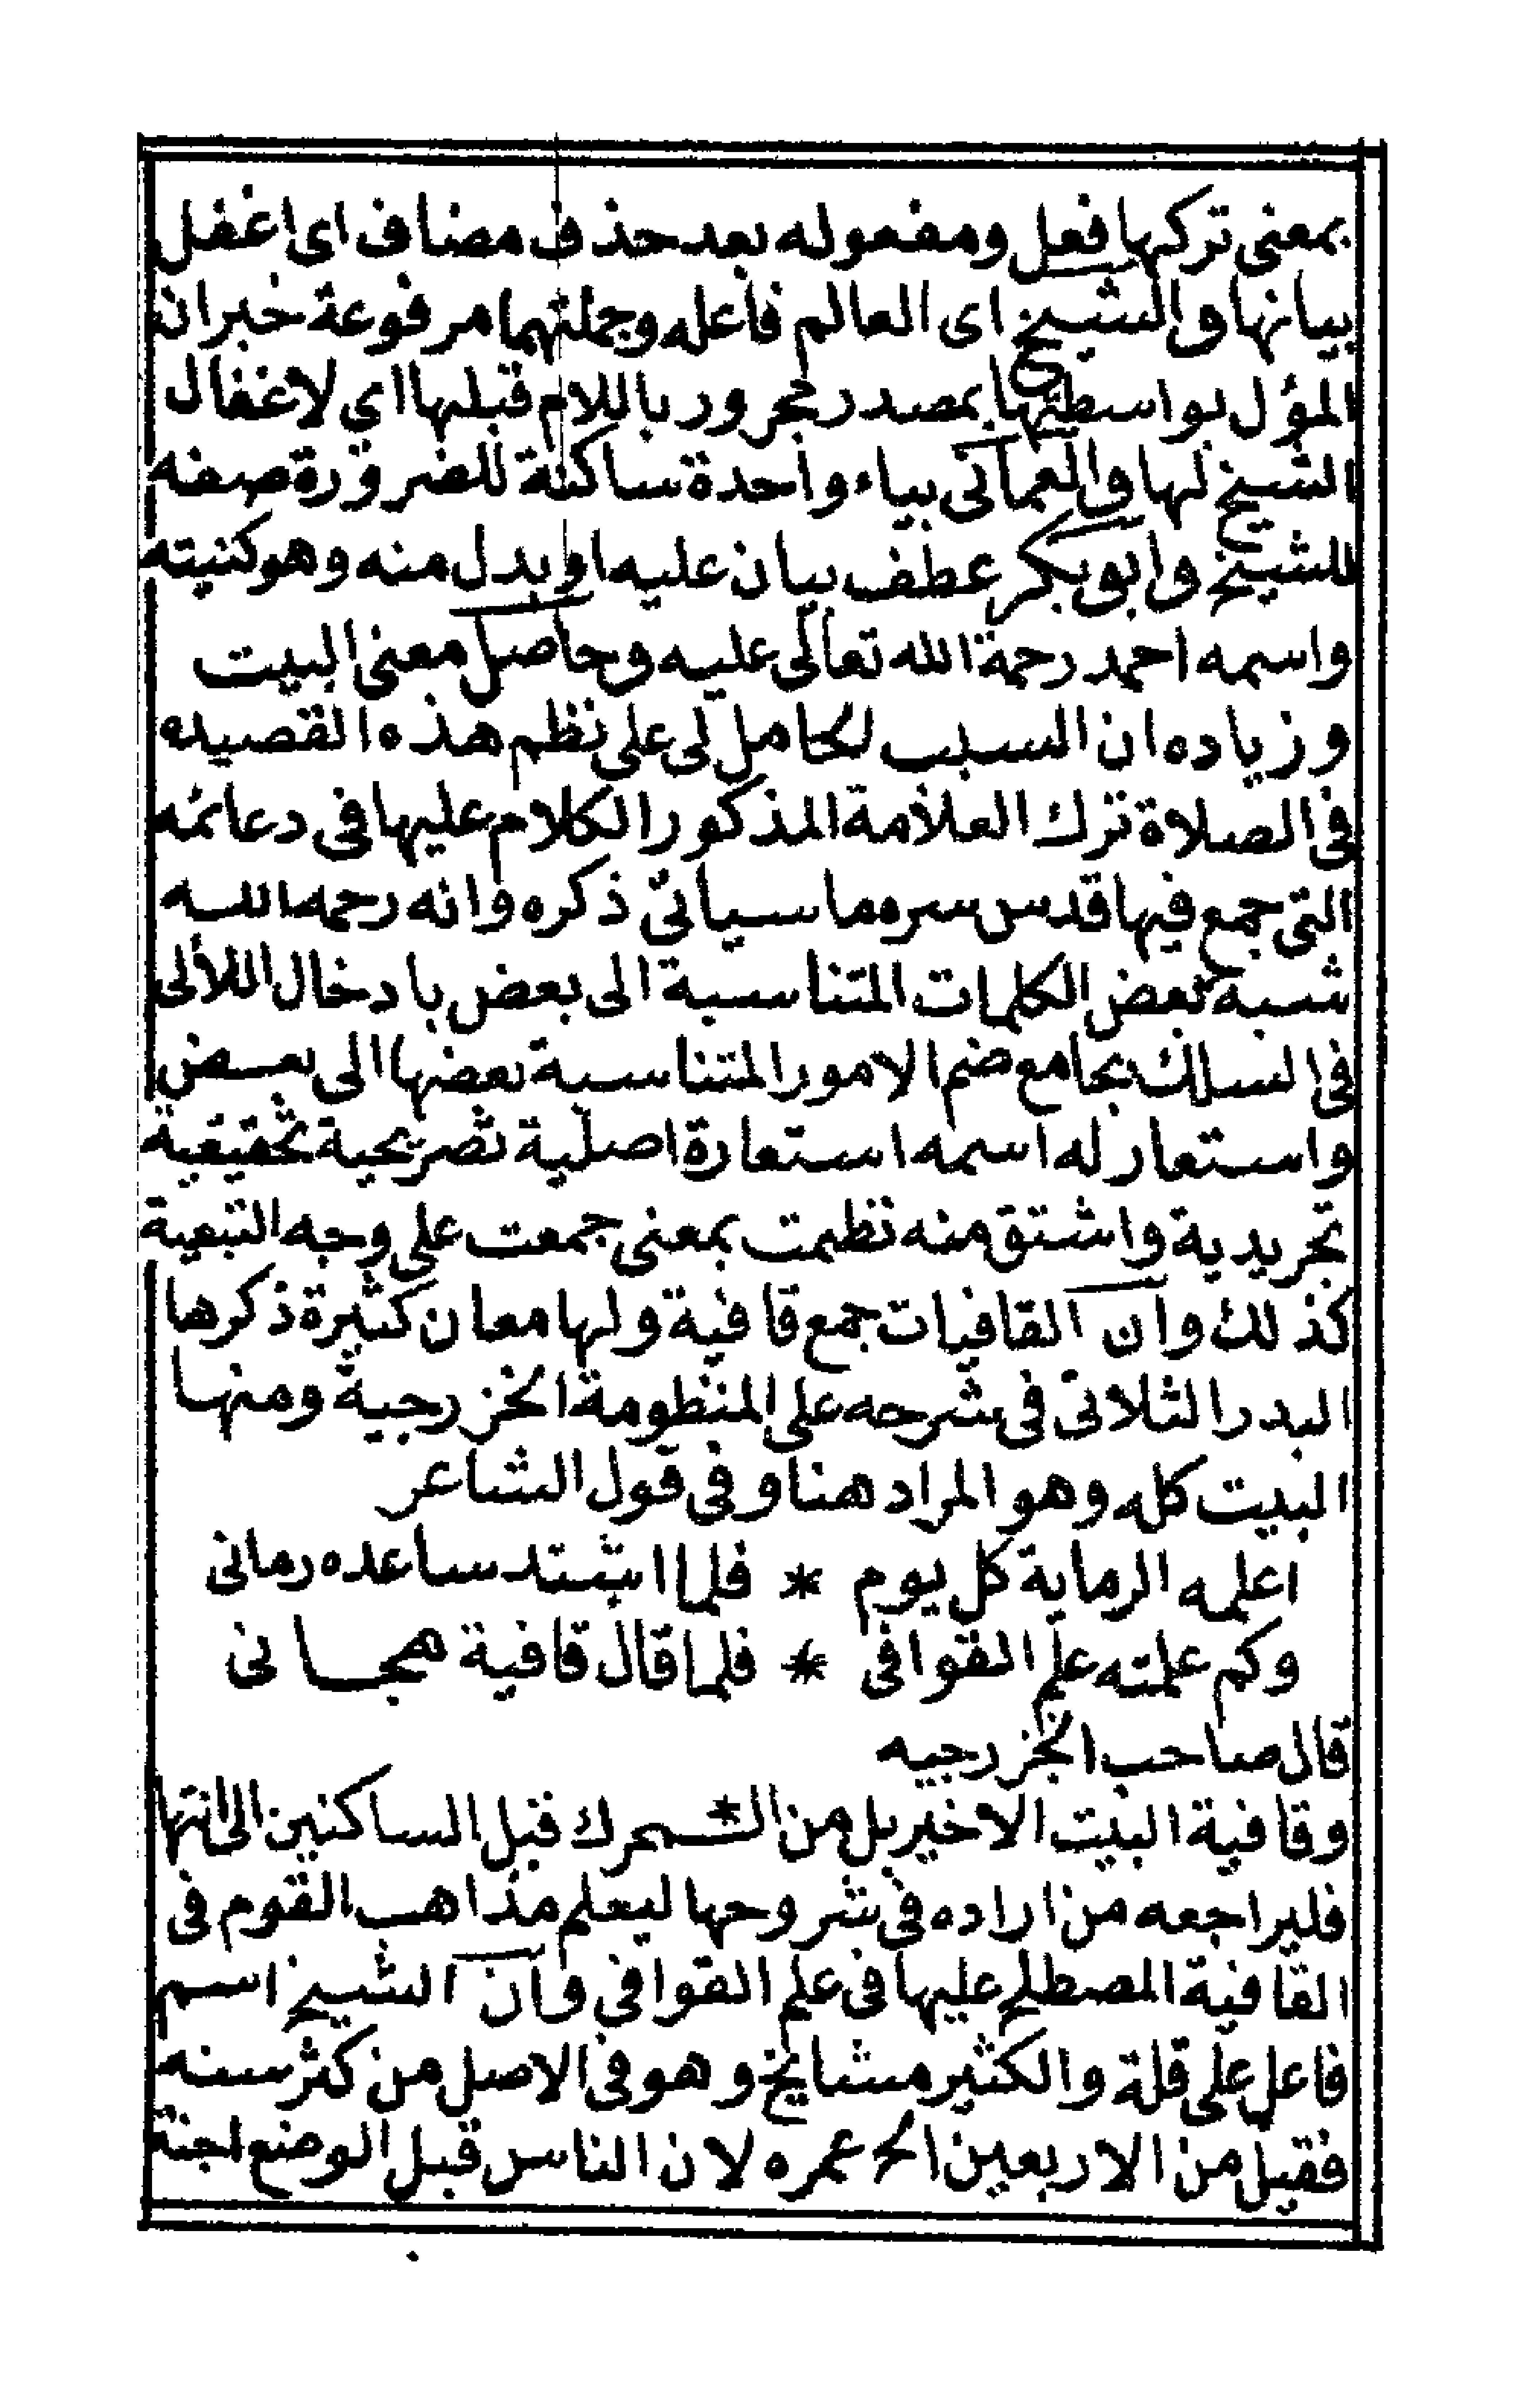 بمعنى تركها فعل ومفعوله بعد حذف مضاف اى اغفل
بيانها والشيخ اى العالم فاعله وجملتهما مرفوعة خبران
المؤل بواسطتها بمصدر مجرور باللام قبلها اي لاغفال
الشيخ لها والعمانى بياء واحدة ساكنة للضرورة صفه
للشيخ وابوبكر عطف بيان عليه او بدل منه وهو كنيته
واسمه احمد رحمة الله تعالى عليه وحاصل معنى البيت
وزياده ان السبب لحامل لى على نظم هذه القصيده
فى الصلاة ترك العلامة المذكور الكلام عليها فى دعائمه
التى جمع فيها قدس سره ما سياتى ذكره وانه رحمه الله
شبه بعض الكلمات المتناسبة الى بعض بادخال اللألى
فى السلك بجامع ضم الامور المتناسبة بعضها الى بعض
واستعار له اسمه استعارة اصلية تصريحية تحقيقية
تجريدية واشتق منه نظمت بمعنى جمعت على وجه التبعية
كذلك وان القافيات جمع قافية ولها معان كثيرة ذكرها
البدر الثلاتى فى شرحه على المنظومة الخزرجية ومنها
البيت كله وهو المراد هنا وفى قول الشاعر
اعلمه الرماية كل يوم * فلما اشتد ساعده رمانى
وكم علمته علم القوافى * فلما قال قافية هجانى
قال صاحب الخزرجيه
وقافية البيت الاخير بل من المحرك قبل الساكنين الى انتها
فليراجعه من اراده فى شروحها ليعلم مذاهب القوم فى
القافية المصطلح عليها فى علم القوافي وان الشيخ اسم
فاعل على قلة والكثير مشايخ وهو فى الاصل من كثر سنه
فقيل من الاربعين الخ عمره لان الناس قبل الوضع اجنة